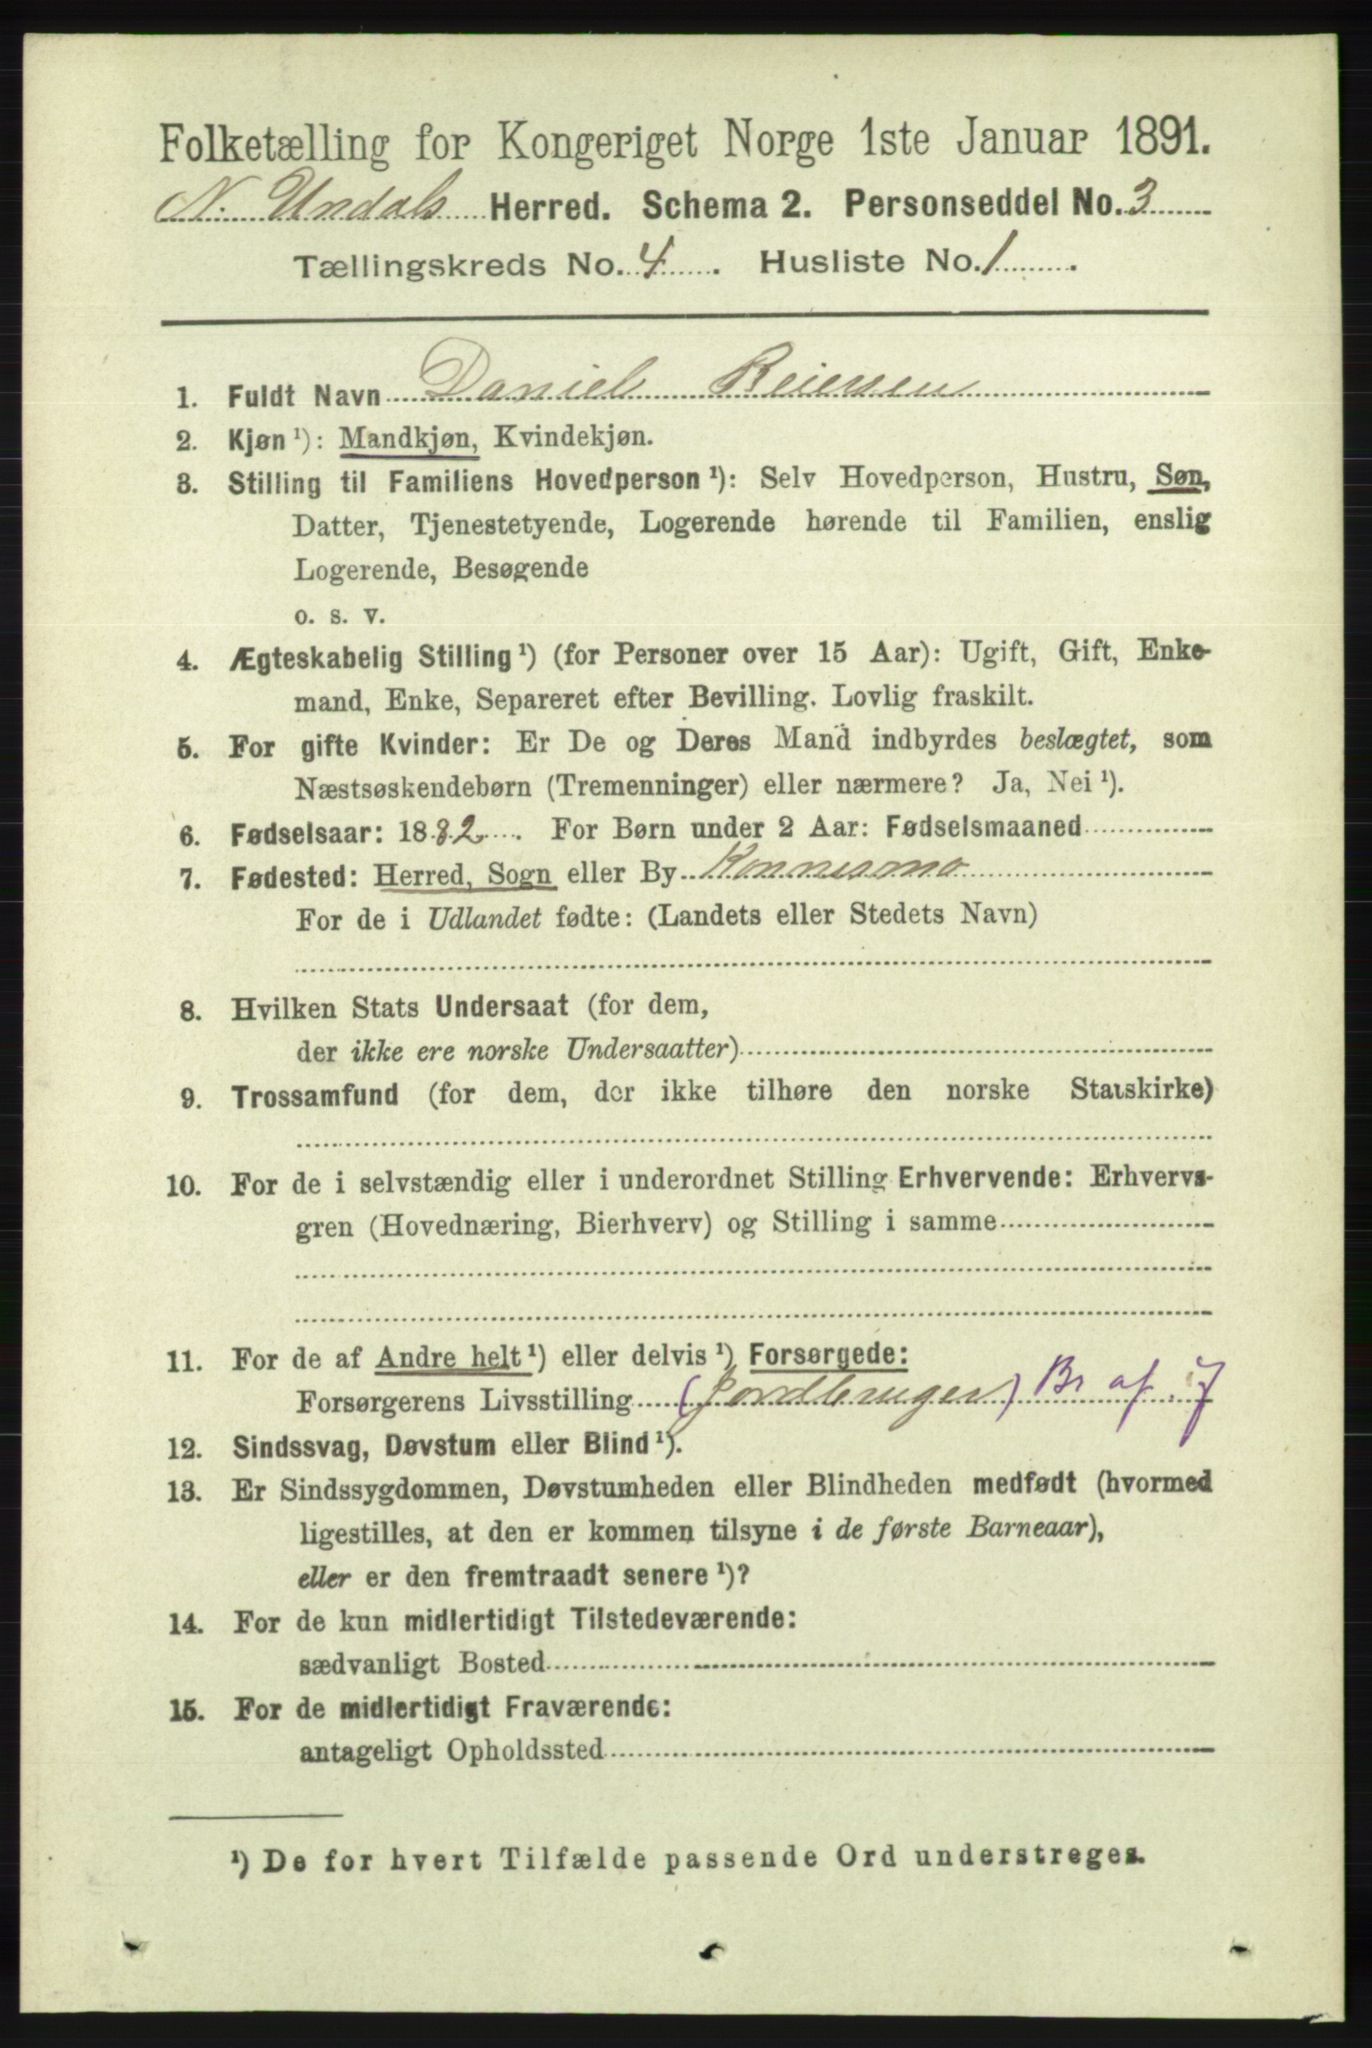 Folketælling for Kongeriget Norge 1ste Januar 1891.
N. Undals Herred. Schema 2. Personseddel No. 3
Tællingskreds No. 4. Husliste No. 1.
1. Fuldt Navn Daniel Reiersen
2. Kjøn ¹): Mandkjøn, Kvindekjøn.
3. Stilling til Familiens Hovedperson ¹): Selv Hovedperson, Hustru, Søn,
Datter, Tjenestetyende, Logerende hørende til Familien, enslig
Logerende, Besøgende
o. s. v.
4. Ægteskabelig Stilling ¹) (for Personer over 15 Aar): Ugift, Gift, Enke-
mand, Enke, Separeret efter Bevilling. Lovlig fraskilt.
5. For gifte Kvinder: Er De og Deres Mand indbyrdes beslægtet, som
Næstsøskendebørn (Tremenninger) eller nærmere? Ja, Nei ¹).
6. Fødselsaar: 1882. For Børn under 2 Aar: Fødselsmaaned
7. Fødested: Herred, Sogn eller By Konnesmo
For de i Udlandet fødte: (Landets eller Stedets Navn)
8. Hvilken Stats Undersaat (for dem,
der ikke ere norske Undersaatter)
9. Trossamfund (for dem, der ikke tilhøre den norske Statskirke)
10. For de i selvstændig eller i underordnet Stilling Erhvervende: Erhvervs-
gren (Hovednæring, Bierhverv) og Stilling i samme
11. For de af Andre helt ¹) eller delvis ¹) Forsørgede:
Forsørgerens Livsstilling (Jordbruger) Br af J
12. Sindssvag, Døvstum eller Blind ¹).
13. Er Sindssygdommen, Døvstumheden eller Blindheden medfødt (hvormed
ligestilles, at den er kommen tilsyne i de første Barneaar),
eller er den fremtraadt senere ¹)?
14. For de kun midlertidigt Tilstedeværende:
sædvanligt Bosted
15. For de midlertidigt Fraværende:
antageligt Opholdssted
¹) De for hvert Tilfælde passende Ord understreges.